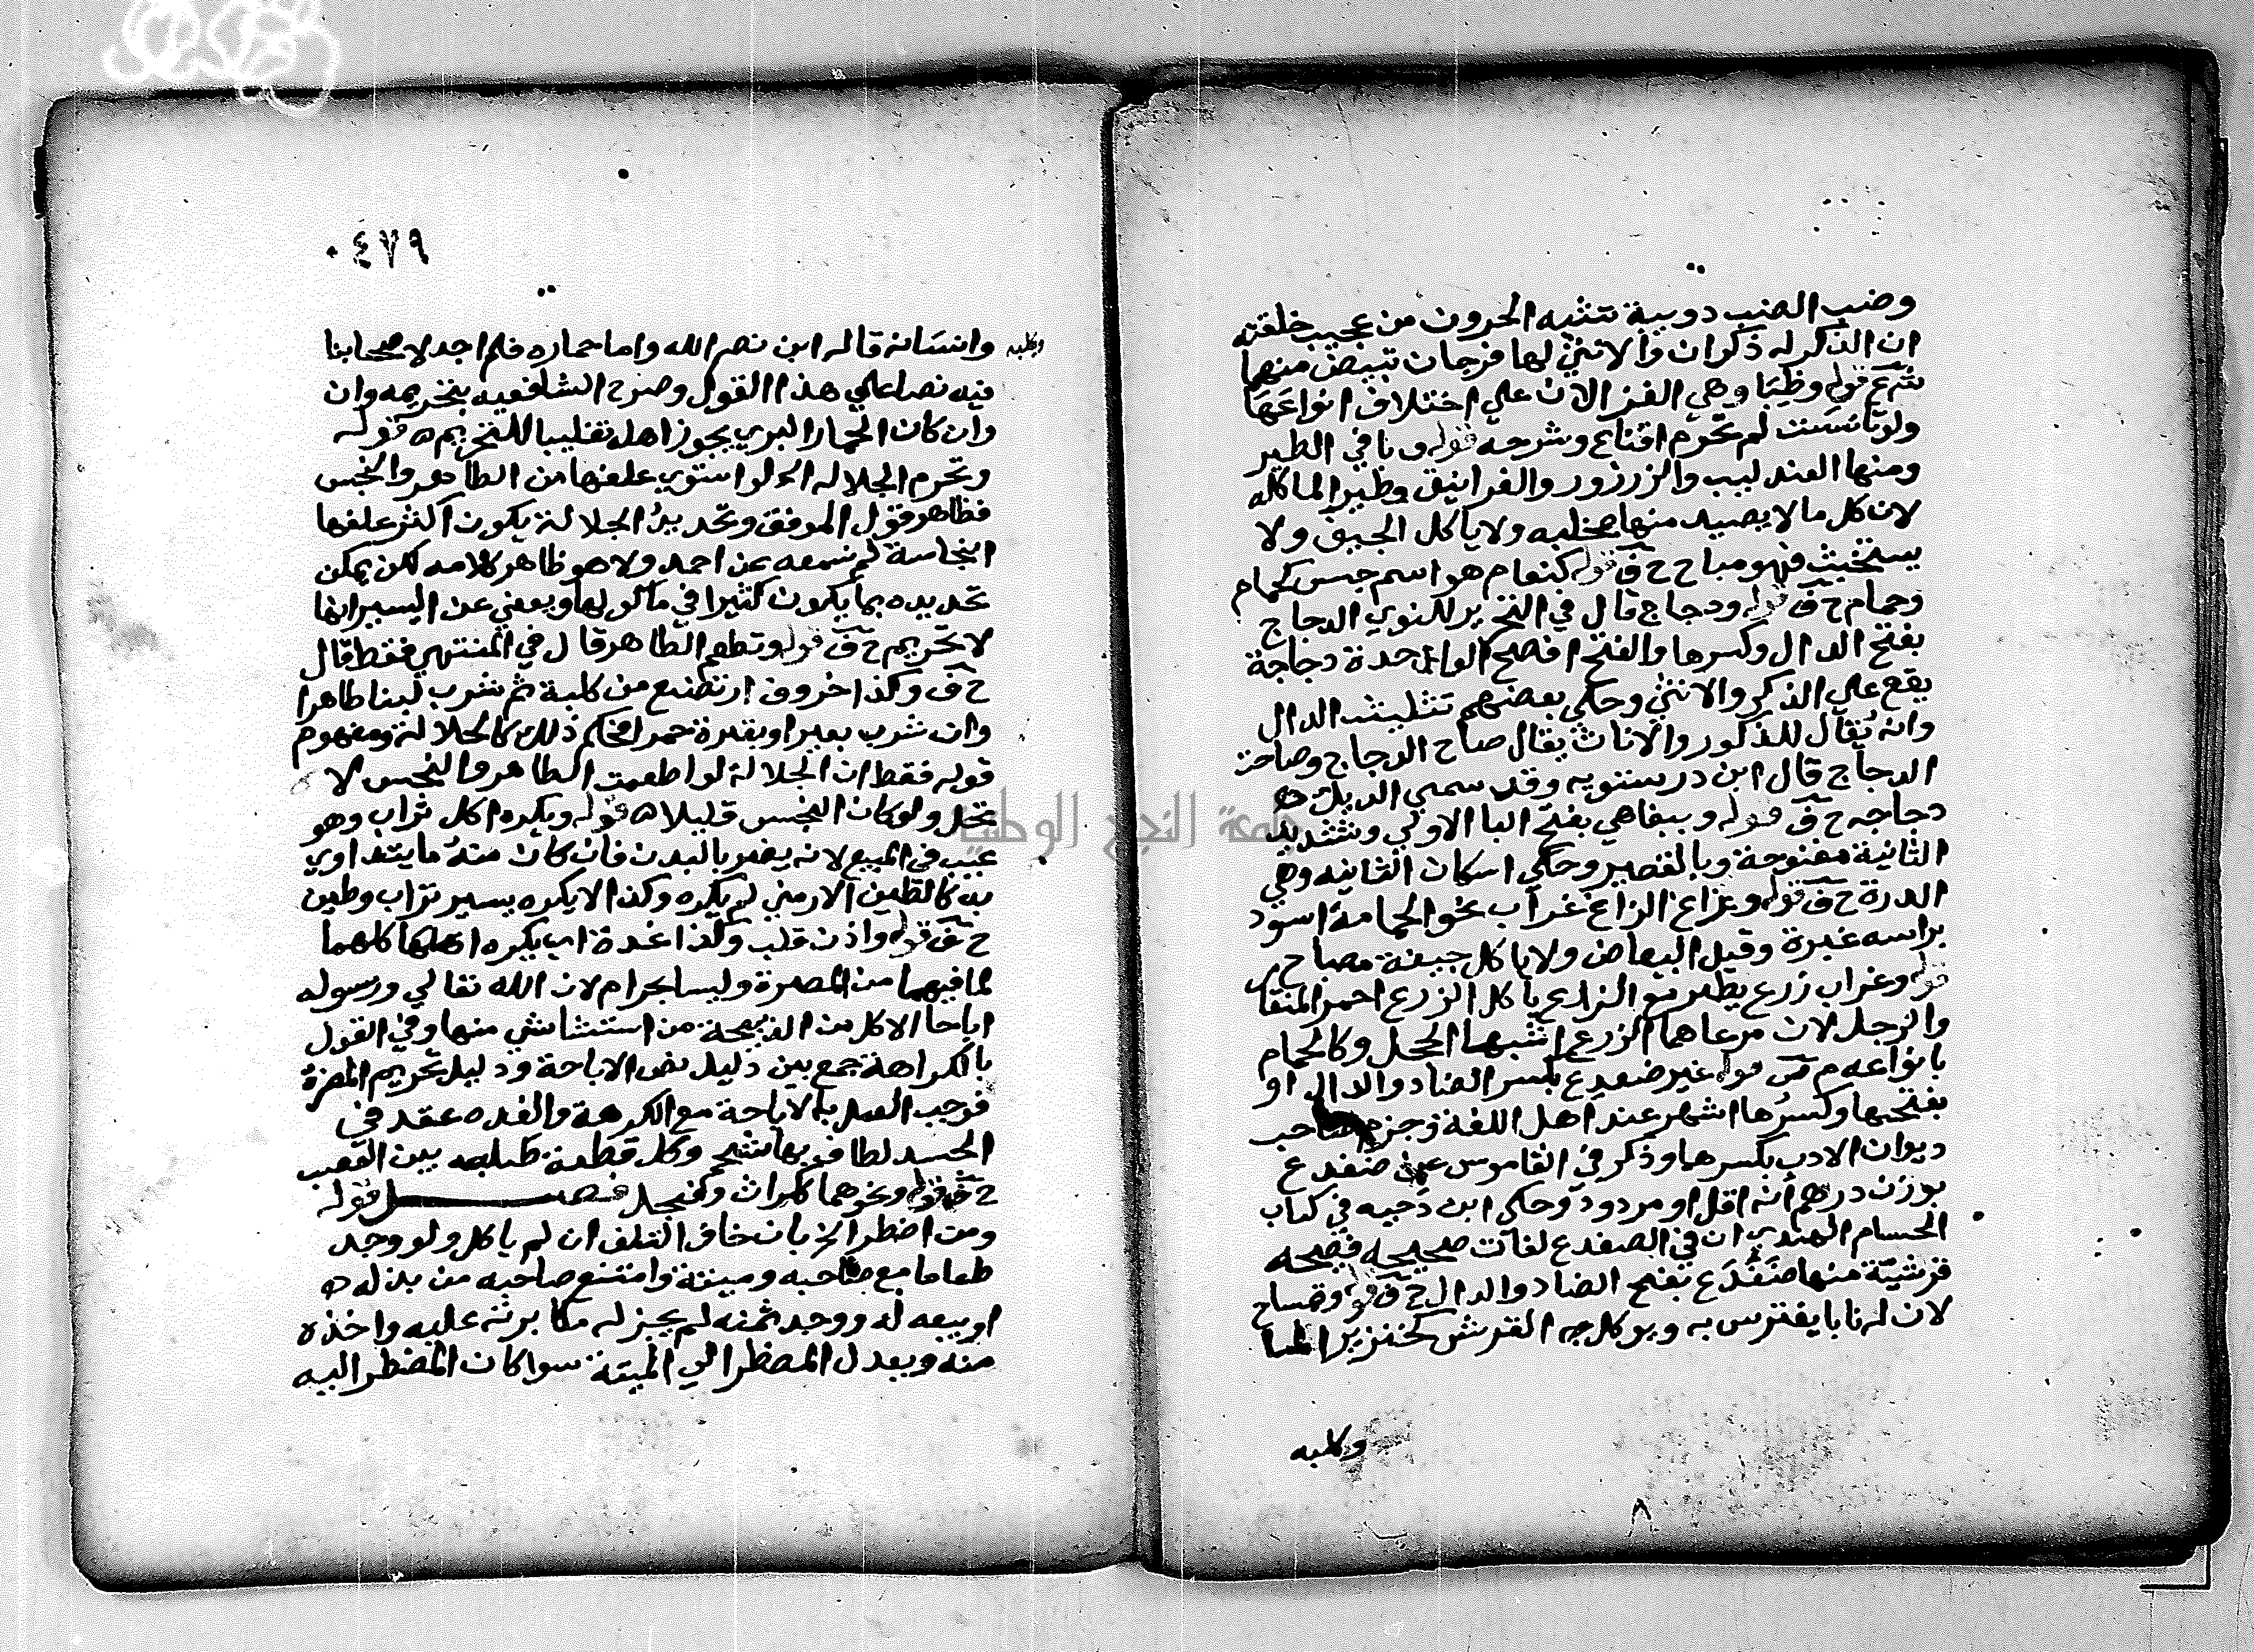 وضب الضب دويبة تشبه الحرون من عجيب خلقته
ان الذكر له ذكران والانثي لها فرجان تبيض منهما
شرع قوله وظبا وهي الغزالان علي اختلاف انواعها
ولو تانست لم تحرم اقناع وشرحه قوله وباقي الطير
ومنها العندليب والزرزور والغرانيق وطير الما كله
لان كل ما لا يصيد منها بمخلبه ولا ياكل الجيف ولا
يستخبث فهو مباح ح ف قوله كنعام هو اسم جنس كحمام
وحمام ح ف قوله ودجاج قال في التحرير للنووي الدجاج
بفتح الدال وكسرها والفتح افصح الواحدة دجاجة
يقع علي الذكر والانثي وحكي بعضهم تثليث الدال
وانه يقال للذكور والاناث يقال صاح الدجاج وصاحت
الدجاج قال ابن درستويه وقد سمي الديك
دجاجه ح ف قوله وببغا هي بفتح البا الاولي وتشديد
الثانية مفتوحة وبالقصر وحكي اسكان الثانيه وهي
الدرة ح ف قوله وزاغ الزاغ غراب نحو الحمامة اسود
براسه غبرة وقيل البياض ولا ياكل جيفة مصباح
قوله وغراب زرع يطير مع الزاغ ياكل الزرع احمر المنقار
والرجل لان مرعاهما الزرع اشبها الحجل وكالحمام
بانواعه م ص قوله غير ضفدع بكسر الضاد والدال او
بفتحها وكسرها اشهر عند اهل اللغة وجزم صاحب
ديوان الادب بكسرهما وذكر في القاموس ضفدع
بوزن درهم انه اقل او مردود وحكي ابن دحيه في كتاب
الحسام الهندي ان في الضفدع لغات صحيحه فصيحه
قرشية منها ضفدع بفتح الضاد والدال ح ف قوله وتمساح
لان له نابا يفترس به ويوكل القرش كخنزير الما
وكلبه
٤٧٩
وكلبه وانسانه قاله ابن نصر الله واما حماره فلم اجد لاصحابنا
فيه نصا علي هذا القول وصرح الشافعيه بتحريمه وان
وان كان الحمار البري يجوز اهله تغليبا للتحريم قوله
وتحرم الجلاله الخ لو استوي علفها من الطاهر والنجس
فظاهر قول الموفق وتحديد الجلالة يكون اكثر علفها
النجاسة لم نسمعه عن احمد ولا هو ظاهر كلامه لكن يمكن
تحديده بما يكون كثيرا في ماكولها ويعفي عن اليسير انها
لا تحريم ح ف قوله وتطعم الطاهر قال في المنتهي فقط قال
ح ف وكذا خروف ارتضع من كلبة ثم شرب لبنا طاهرا
وان شرب بعير او بقرة خمرا فحكم ذلك كالجلالة ومفهوم
قوله فقط ان الجلالة لو اطعمت الطاهر والنجس لا
تحل ولو كان النجس قليلا قوله ويكره اكل تراب وهو
عيب في المبيع لانه يضر بالبدن فان كان منه ما يتداوي
به كالطين الارمني لم يكره وكذا لا يكره يسير تراب وطين
ح ف قوله واذن قلب وكذا غدة اي يكره اكلها كلهما
لما فيهما من المضرة وليسا بحرام لان الله تعالي ورسوله
اباحا الاكل من الذبيحة من استثنا شي منها وفي القول
بالكراهة جمع بين دليل نص الاباحة ودليل تحريم المضرة
فوجب العمل بالاباحة مع الكرهة والغده عقد في
الجسد لطاف بها شحم وكل قطعة صلبه بين القصب
ح ف قوله ونحوهما ككراث وكفجل فصل قوله
ومن اضطر الخ بان خاف التلف ان لم ياكل ولو وجد
طعاما مع صاحبه وميتة وامتنع صاحبه من بذله
او بيعه له ووجد ثمنه لم يجز له مكابرته عليه واخذه
منه ويعدل المضطر الي الميتة سوا كان المضطر اليه
جامعة النجاح الوطنية